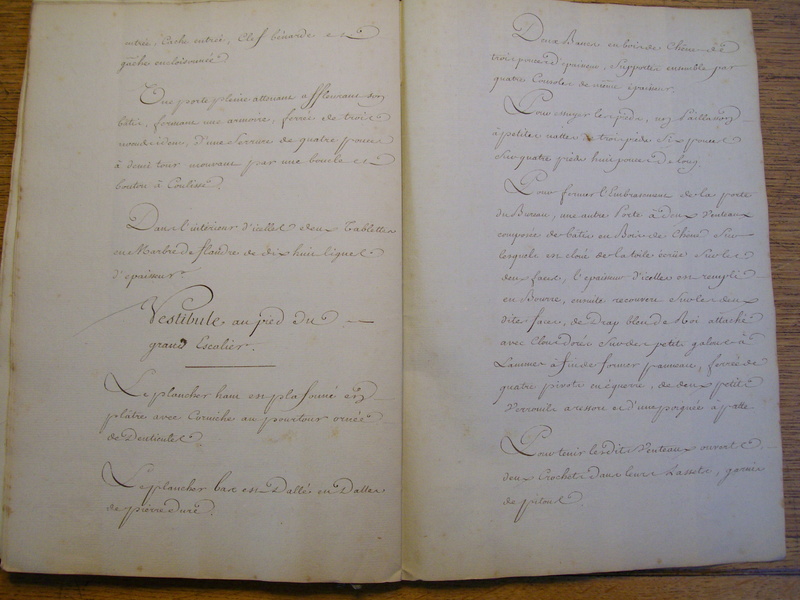 entrée, Cache entrée, Clef bénarde et
gâche encloisonnée
Une porte pleine attenant affleurant son
bâtis, formant une armoire, ferrée de trois
noeuds, d'une Serrure de quatre pouces
à demi tour mouvant par une boucle et
bouton à Coulisse.
Dans l'intérieur d'icelle deux Tablettes
en Marbre de flandre de dix huit lignes
d'épaisseur.
Vestibule au pied du
grand Escalier.
Le plancher haut en plafonné en
plâtre avec Corniche au pourtour ornée
de Denticules
Le plancher bas est Dallé en Dalles
de pierre dure.
Deux Bancs en bois de Chêne de
trois pouces d'épaisseur, Supportés ensemble par
quatre Consoles de même épaisseur.
Pour essuyer les pieds, un paillasson
à petites nattes de trois pieds Six pouces
Sur quatre pieds huit pouces de long
Pour former l'Embrasement de la porte
du Bureau, une autre Porte à Deux Venteaux
composée de bâtis en Bois de Chêne Sur
lesquels est cloué de la toile écrue Sur les
deux faces, l'épaisseur d'icelles est rempli
en Bourre, ensuite recouvert Sur les deux
dites faces, de Drap bleu de Roi attaché
avec Clous dorés Sur de petits galons à
Lammes à fin de former panneau, ferrée de
quatre pivots en équerre, de deux petits
Verrouils a ressore et d'une poignée à patte
Pour tenir lesdits Venteaux ouverts
deux Crochets dans leurs Lassets, garnis
de pitons.